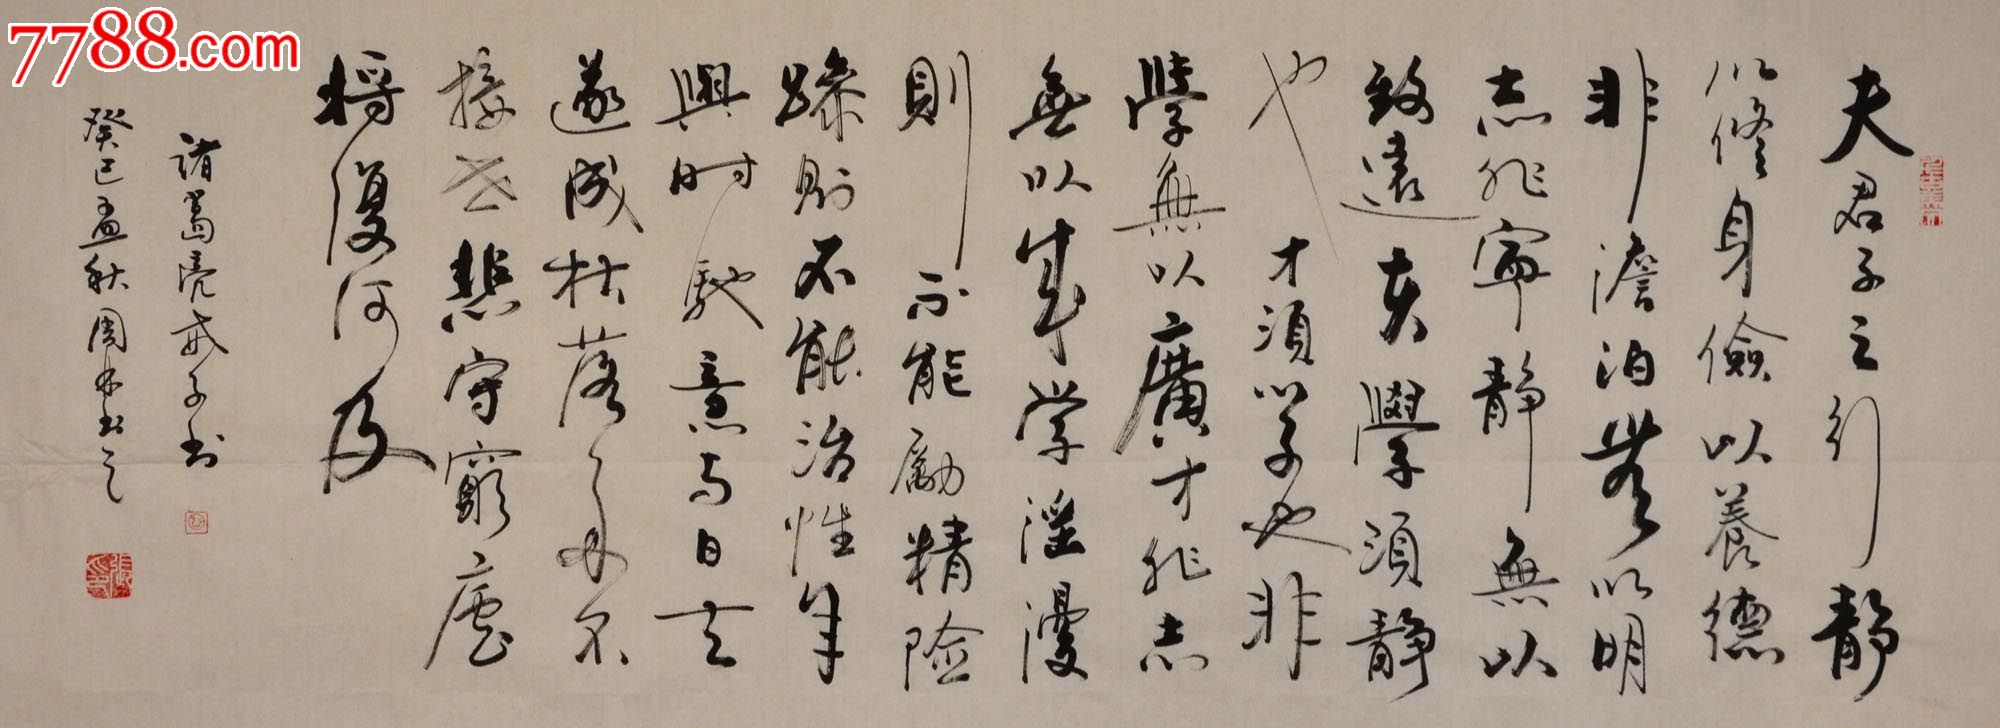 7788.com
夫君子之行静
以修身儉以養德
非澹泊無以明
志非寧静無以
致遠夫學須静
也才須学也非
學無以廣才非志
無以成学淫漫
則不能勵精險
躁則不能治性年
與时馳意与日去
遂成枯落多不
接世悲守窮廬
將復何及
諸葛亮戒子书
癸巳孟秋周书之